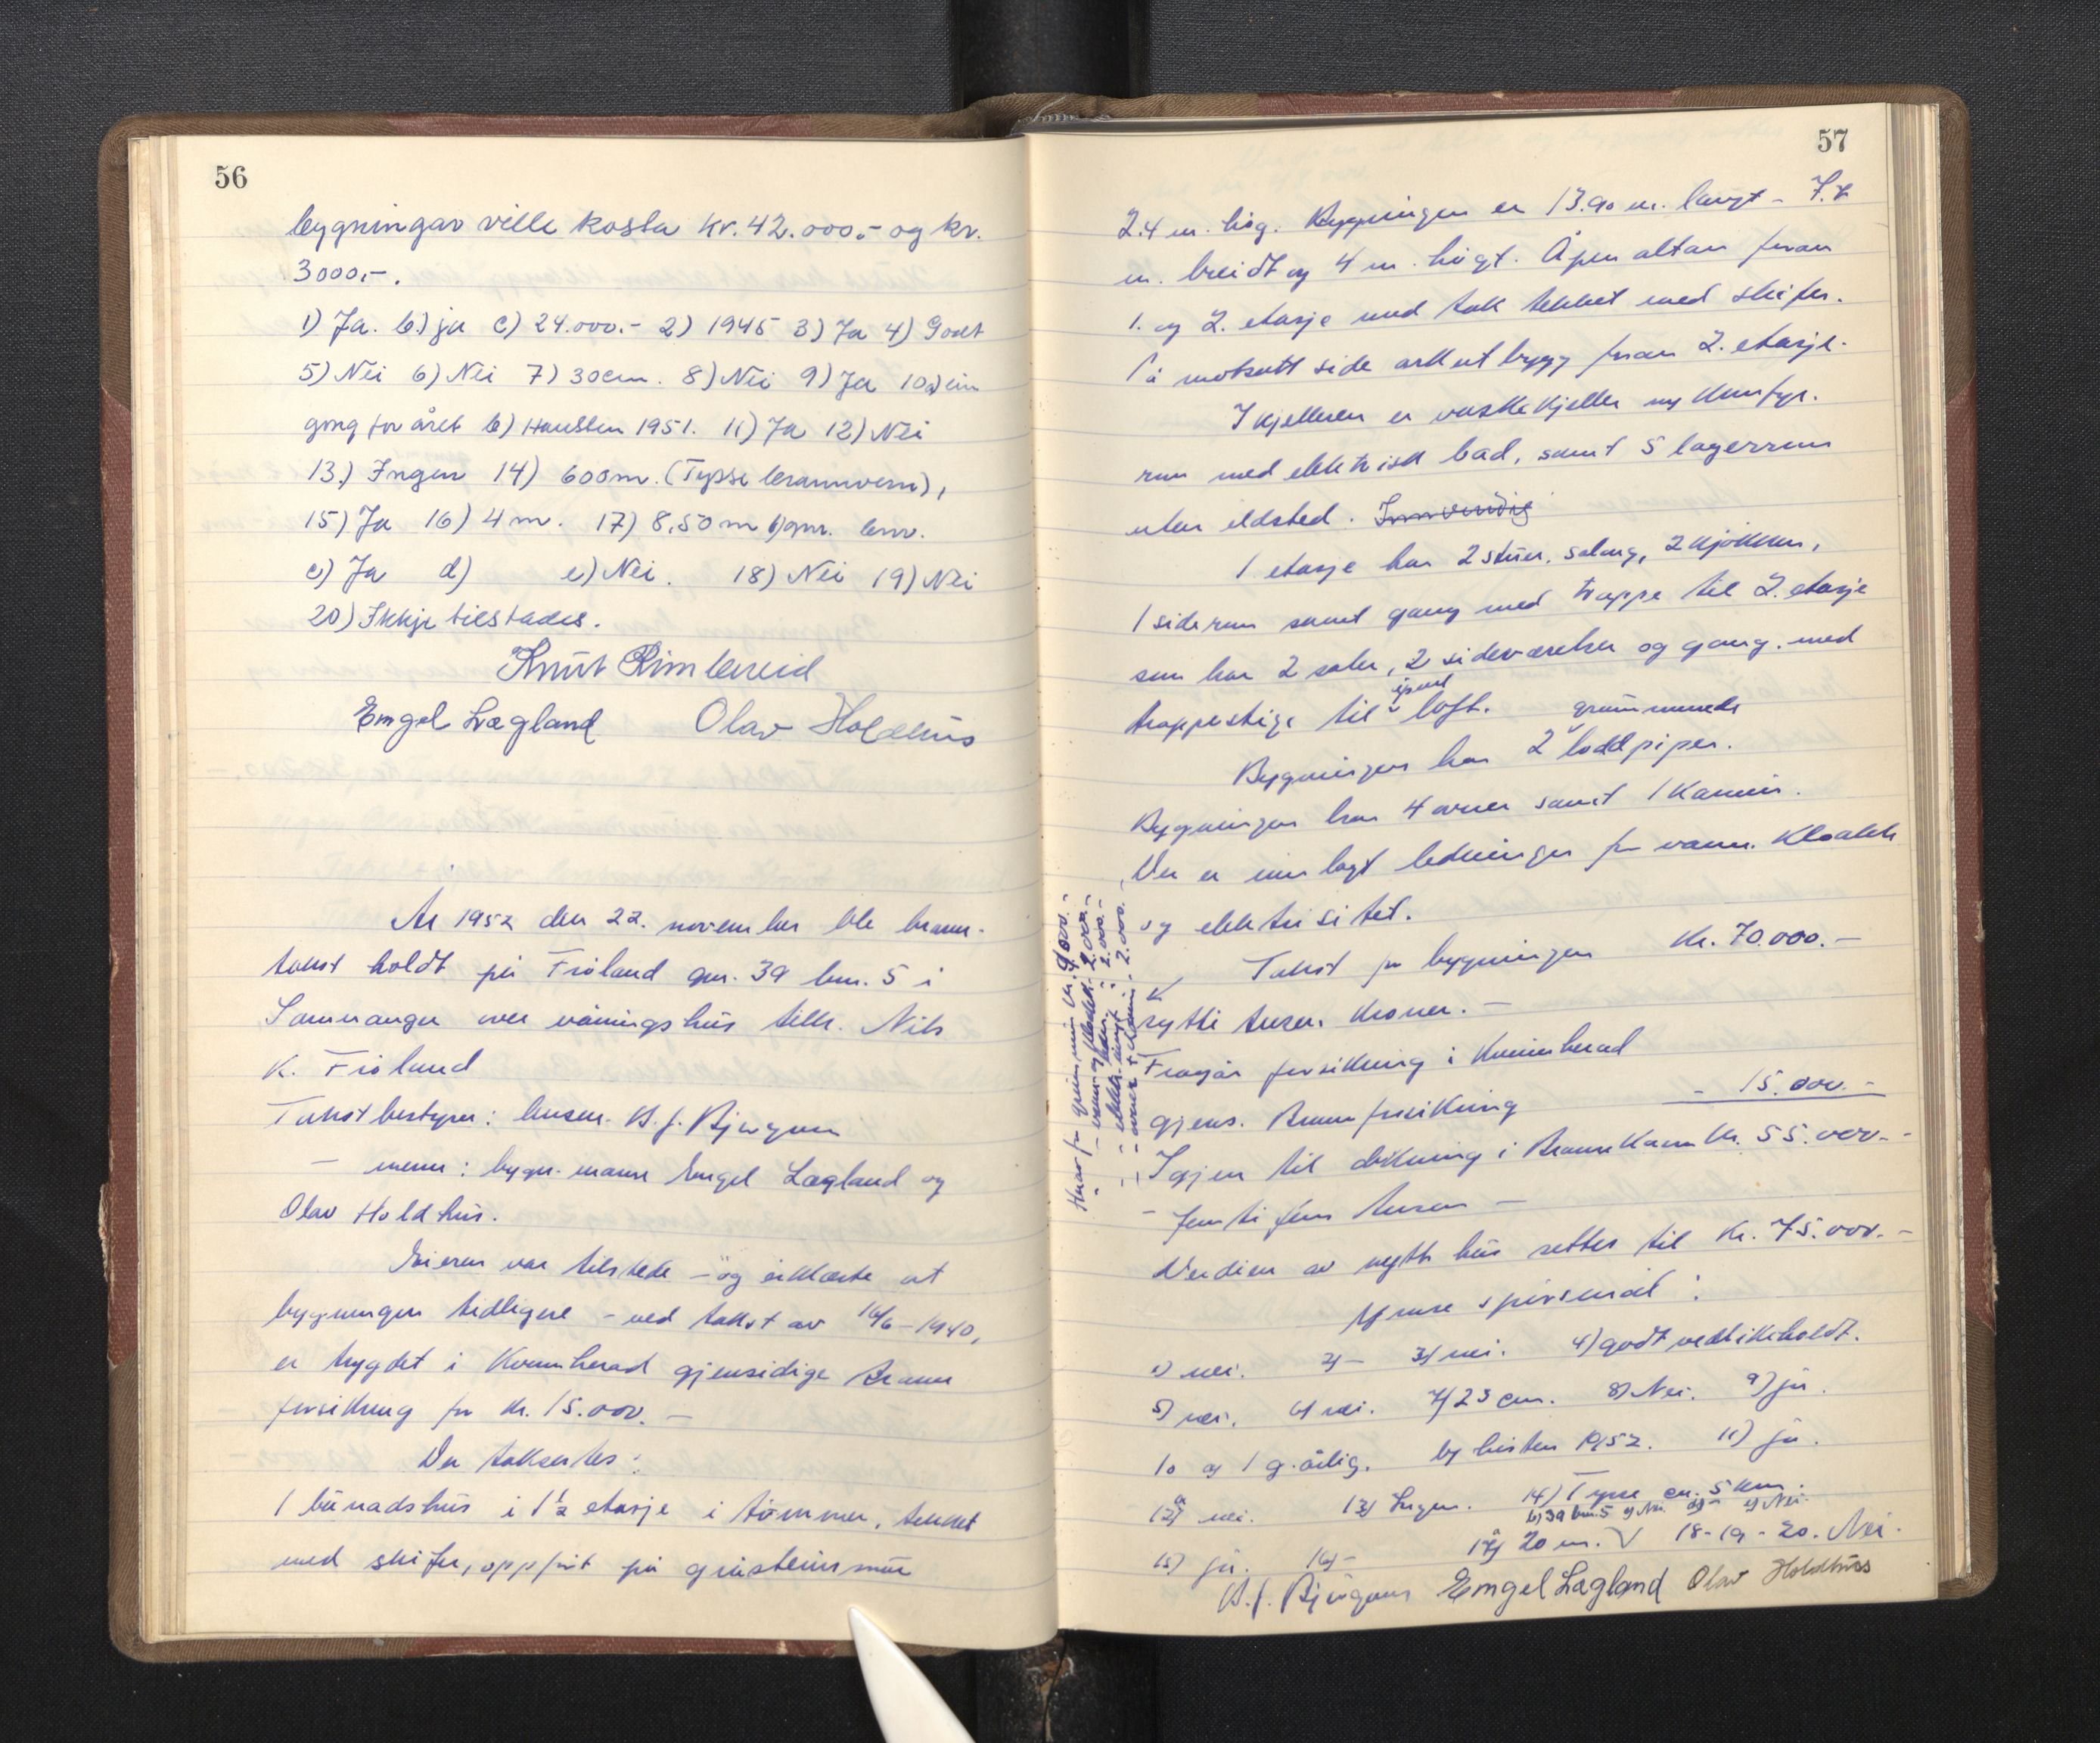 56
bygningar ville kosta kr. 42.000.- og kr.
3000,-.
1) Ja. b.) ja c) 24.000.- 2) 1945 3) Ja 4) Godt
5) Nei 6) Nei 7) 30cm. 8) Nei 9) Ja 10a) ein
gong for året b) Hausten 1951. 11) Ja 12) Nei
13.) Ingen 14) 600m. (Tysse brannvern),
15) Ja 16) 4 m. 17) 8,50 m b) gnr. bnr.
c) Ja d) e) Nei. 18) Nei 19) Nei
20) Ikkje tilstades.
Knut Rimbereid
Emgel Lægland Olav Holdhus
År 1952 den 22. november ble brann-
takst holdt på Frøland gnr. 39 bnr. 5 i
Samnanger over våningshus tilh. Nils
K. Frøland
Takstbestyrer: lensm. B. J. Bjørgum
— menn: bygn. mann Emgel Lægland og
Olav Holdhus.
Eieren var tilstede - og erklærte at
bygningen tidligere - ved takst av 16/6-1940,
er trygdet i Kvinnherad gjensidige brann
forsikring for kr. 15.000.-
Der taksertes:
1 bunadshus i 1 1/2 etasje i tømmer, tekket
med skifer, oppført på gråsteinsmur
57
2.4 m. høg. Bygningen er 13.90 m. langt - 7.
m. breidt og 4 m. høgt. Åpen altan foran
1. og 2. etasje med tak tekket med skifer.
På motsatt side ark utbygg foran 2. etasje.
I kjelleren er vaskekjeller og
rum med elektrisk bad, samt 5 lagerrum
uten ildsted. Innvendig
1 etasje har 2 stuer, salong, 2 kjøkken,
1 siderum samt gang med trappe til 2. etasje
som har 2 saler, 2 sideværelser og gang. med
trappestige til loft.
grunnmurede
Bygningen har 2 loddpiper.
Bygningen har 4 ovner samt 1 kamin.
Der er innlagt ledninger for vann. Kloakk
og elektrisitet.
Takst for bygningen Kr. 70.000.-
sytti tusen kroner.-
Fragår forsikring i Kvinnherad
gjens. Brannforsikring - 15.000.-
Igjen til dekning i Brannkassen kr. 55.000.-
- femti fem tusen -
Verdien av nytt hus settes til kr. 75.000.-
Ymse spørsmål:
1) nei. 2) - 3) nei. 4) godt vedlikeholdt.
5) nei. 6) nei. 7) 23 cm. 8) Nei. 9) ja.
10 a) 1 g. årlig. b) høsten 1952. 11) ja.
12) nei. 13) Ingen. 14) Tysse ca. 5 km.
b) 39 bnr. 5 c) Nei d) - e) Nei.
15) ja. 16) - 17a) 20 m. V 18-19-20. Nei.
B. J. Bjørgum Emgel Lægland Olav Holdhus
Herav for grunnmur kr. 9.000.-
- - vann og kloakk - 2.000.-
- - elektr. - 2.000.-
- - ovner + kamin - 2.000.-